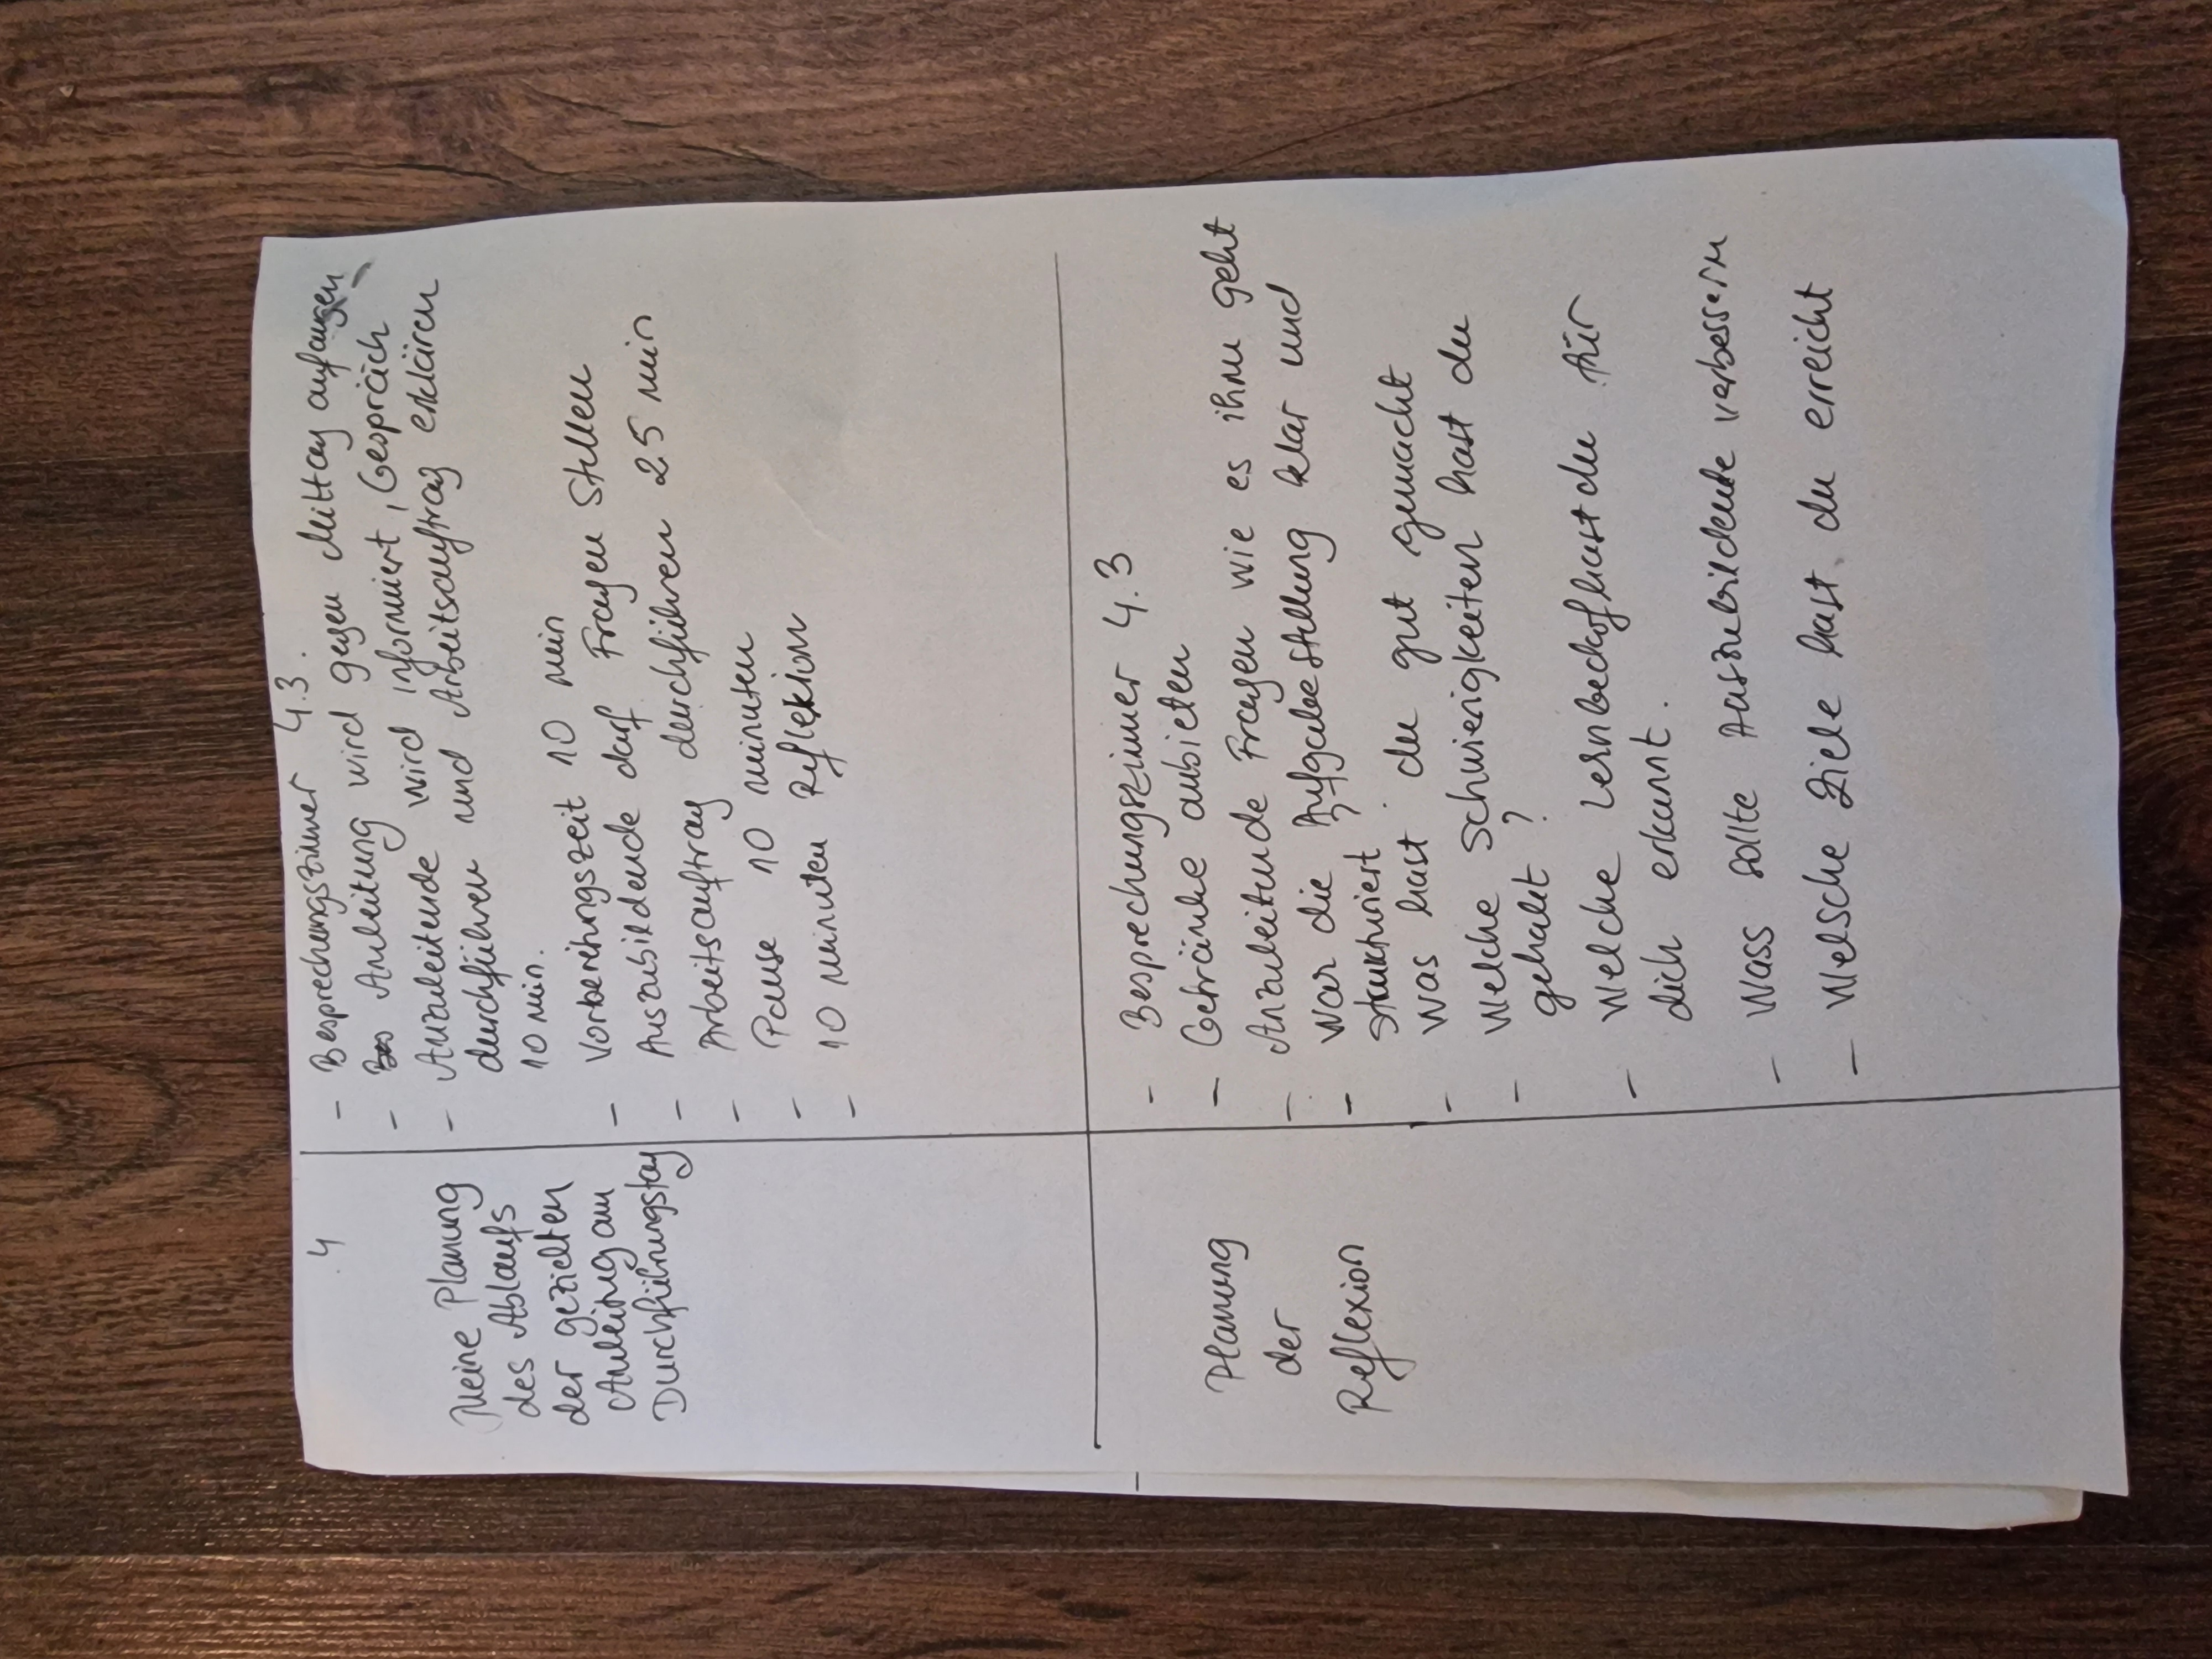 4
Meine Planung
des Ablaufs
der gezielten
Anleitung am
Durchführungstag
- Besprechungszimmer 4.3.
- Anleitung wird gegen Mittag anfangen
- Anzuleitende wird informiert, Gespräch
durchführen und Arbeitsauftrag erklären
10 min.
- Vorbereitungszeit 10 min
- Auszubildende darf Fragen stellen
- Arbeitsauftrag durchführen 25 min
- Pause 10 minuten
- 10 minuten Reflektion
Planung
der
Reflexion
- Besprechungszimer 4.3
- Getränke anbieten
- Anzuleitende Fragen wie es ihm geht
- War die Aufgabestellung klar und
strukturiert?
- Was hast du gut gemacht
- Welche Schwierigkeiten hast du
gehabt?
- Welche Lernbedarf hast du für
dich erkannt.
- Wass sollte Auszubildende verbessern
- Welsche Ziele hast du erreicht